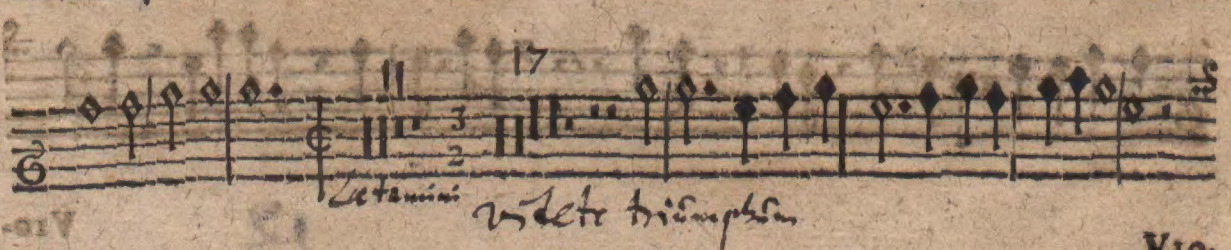 17
3
2
Letamini
videte triumphum
Vio-